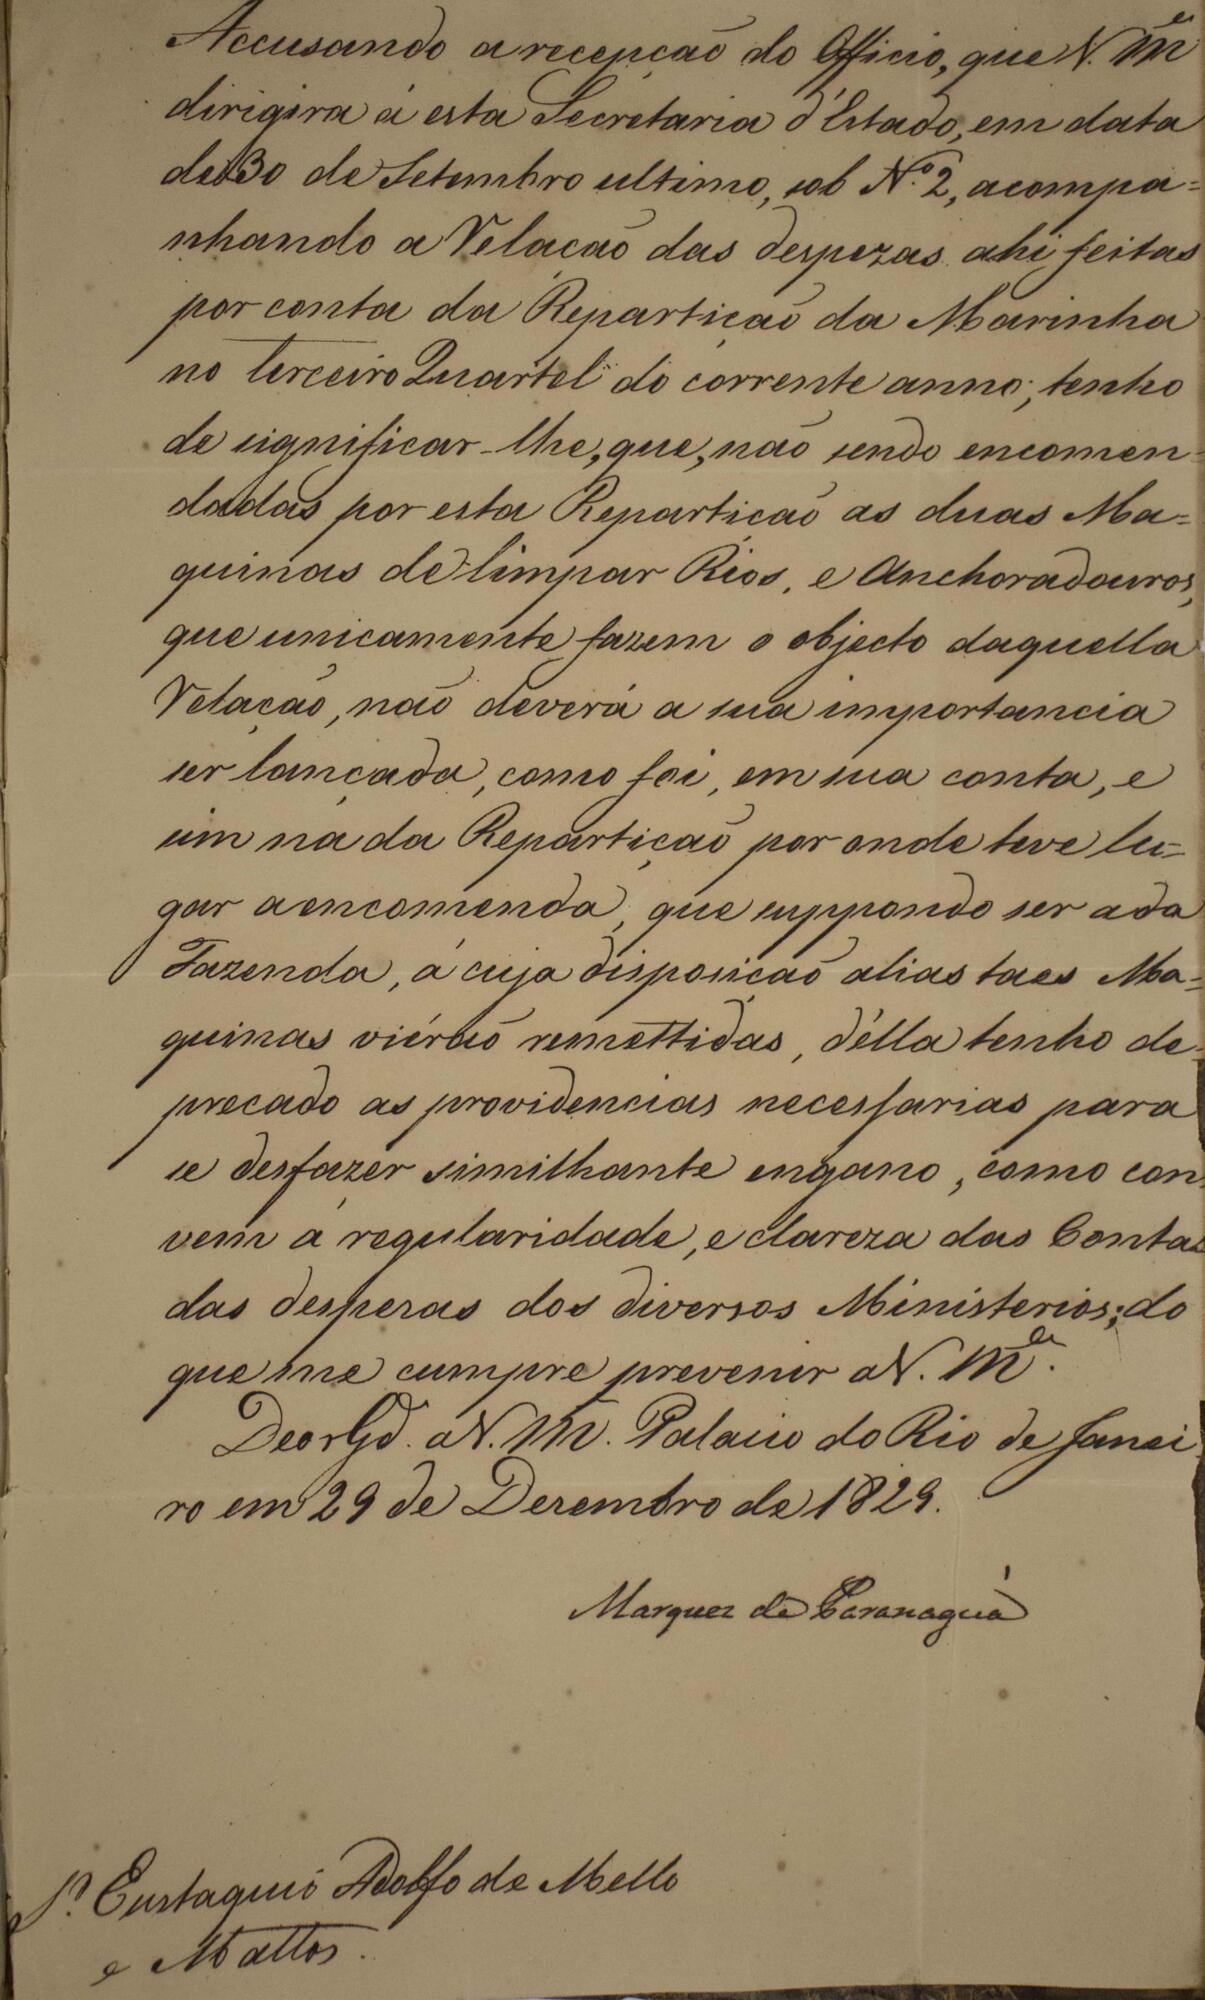 Accusando a recepção do Officio, que V. M.ce
dirigira á esta Secretaria d'Estado, em data
de 30 de Setembro ultimo, sob N.º 2, acompa=
nhando a Relacão das despezas ahi feitas
por conta da Repartição da Marinha
no terceiro Quartel do corrente anno; tenho
de significar-lhe, que, não sendo encomen=
dadas por esta Repartição as duas Ma=
quinas de limpar Rios, e Anchoradouros,
que unicamente fazem o objecto daquella
Relação, não deverá a sua importancia
ser lançada, como foi, em sua conta, e
sim na da Repartição por onde teve lu=
gar a encomenda, que suppondo ser a da
Fazenda, á cuja disposicão alias taes Ma=
quinas viérão remettidas, d'élla tenho de=
precado as providencias necessarias para
se desfazer similhante engano, como con=
vem á regularidade, e clareza das Contas
das despesas dos diversos Ministerios; do
que me cumpre prevenir a V. M.ce
Deos G.de a V. M. Palacio do Rio de Janei
ro em 29 de Dezembro de 1829.
Marquez de Paranaguá
S.r Eustaquio Adolfo de Mello
e Mattos.